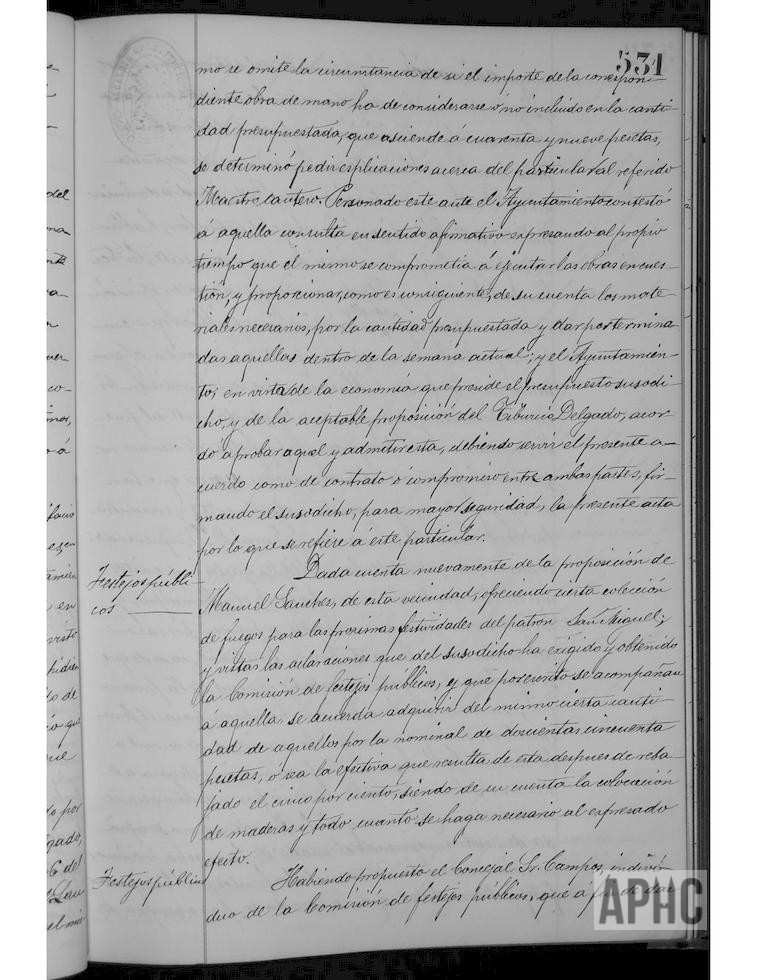 531
mo se omite la circunstancia de si el importe de la correspon-
diente obra de mano ha de considerarse ó no incluido en la canti-
dad presupuestada, que asciende á cuarenta y nueve pesetas,
se determinó pedir esplicaciones acerca del particular al referido
Maestro cantero. Personado este ante el Ayuntamiento contestó
á aquella consulta en sentido afirmativo espresando al propio
tiempo que él mismo se comprometia á ejecutar las obras en cues-
tión, y proporcionar, como es consiguiente, de su cuenta los mate-
riales necesarios, por la cantidad presupuestada y dar por termina-
das aquellas dentro de la semana actual; y el Ayuntamien-
to, en vista de la economía que preside el presupuesto susodi-
cho, y de la aceptable proposición del Tiburcio Delgado, acor-
dó aprobar aquel y admitir esta, debiendo servir el presente a-
cuerdo como de contrato ó compromiso entre ambas partes, fir-
mando el susodicho, para mayor seguridad, la presente acta
por lo que se refiere á este particular.
Festejos públi-
cos
Dada cuenta nuevamente de la proposición de
Manuel Sanches, de esta vecindad, ofreciendo cierta colección
de fuegos para las proximas festividades del patron San Miguel;
y vistas las aclaraciones que del susodicho ha exigido y obtenido
la Comisión de festejos públicos, y que por escrito se acompañan
a aquella, se acuerda adquirir del mismo cierta canti-
dad de aquellos por la nominal de doscientas cincuenta
pesetas, ó sea la efectiva que resulta de esta despues de reba-
jado el cinco por ciento, siendo de su cuenta la colocación
de maderas y todo cuanto se haga necesario al expresado
efecto.
Festejos públicos
Habiendo propuesto el Concejal Sr. Campos, indivi-
duo de la Comisión de festejos públicos, que á fin de dar
APHC